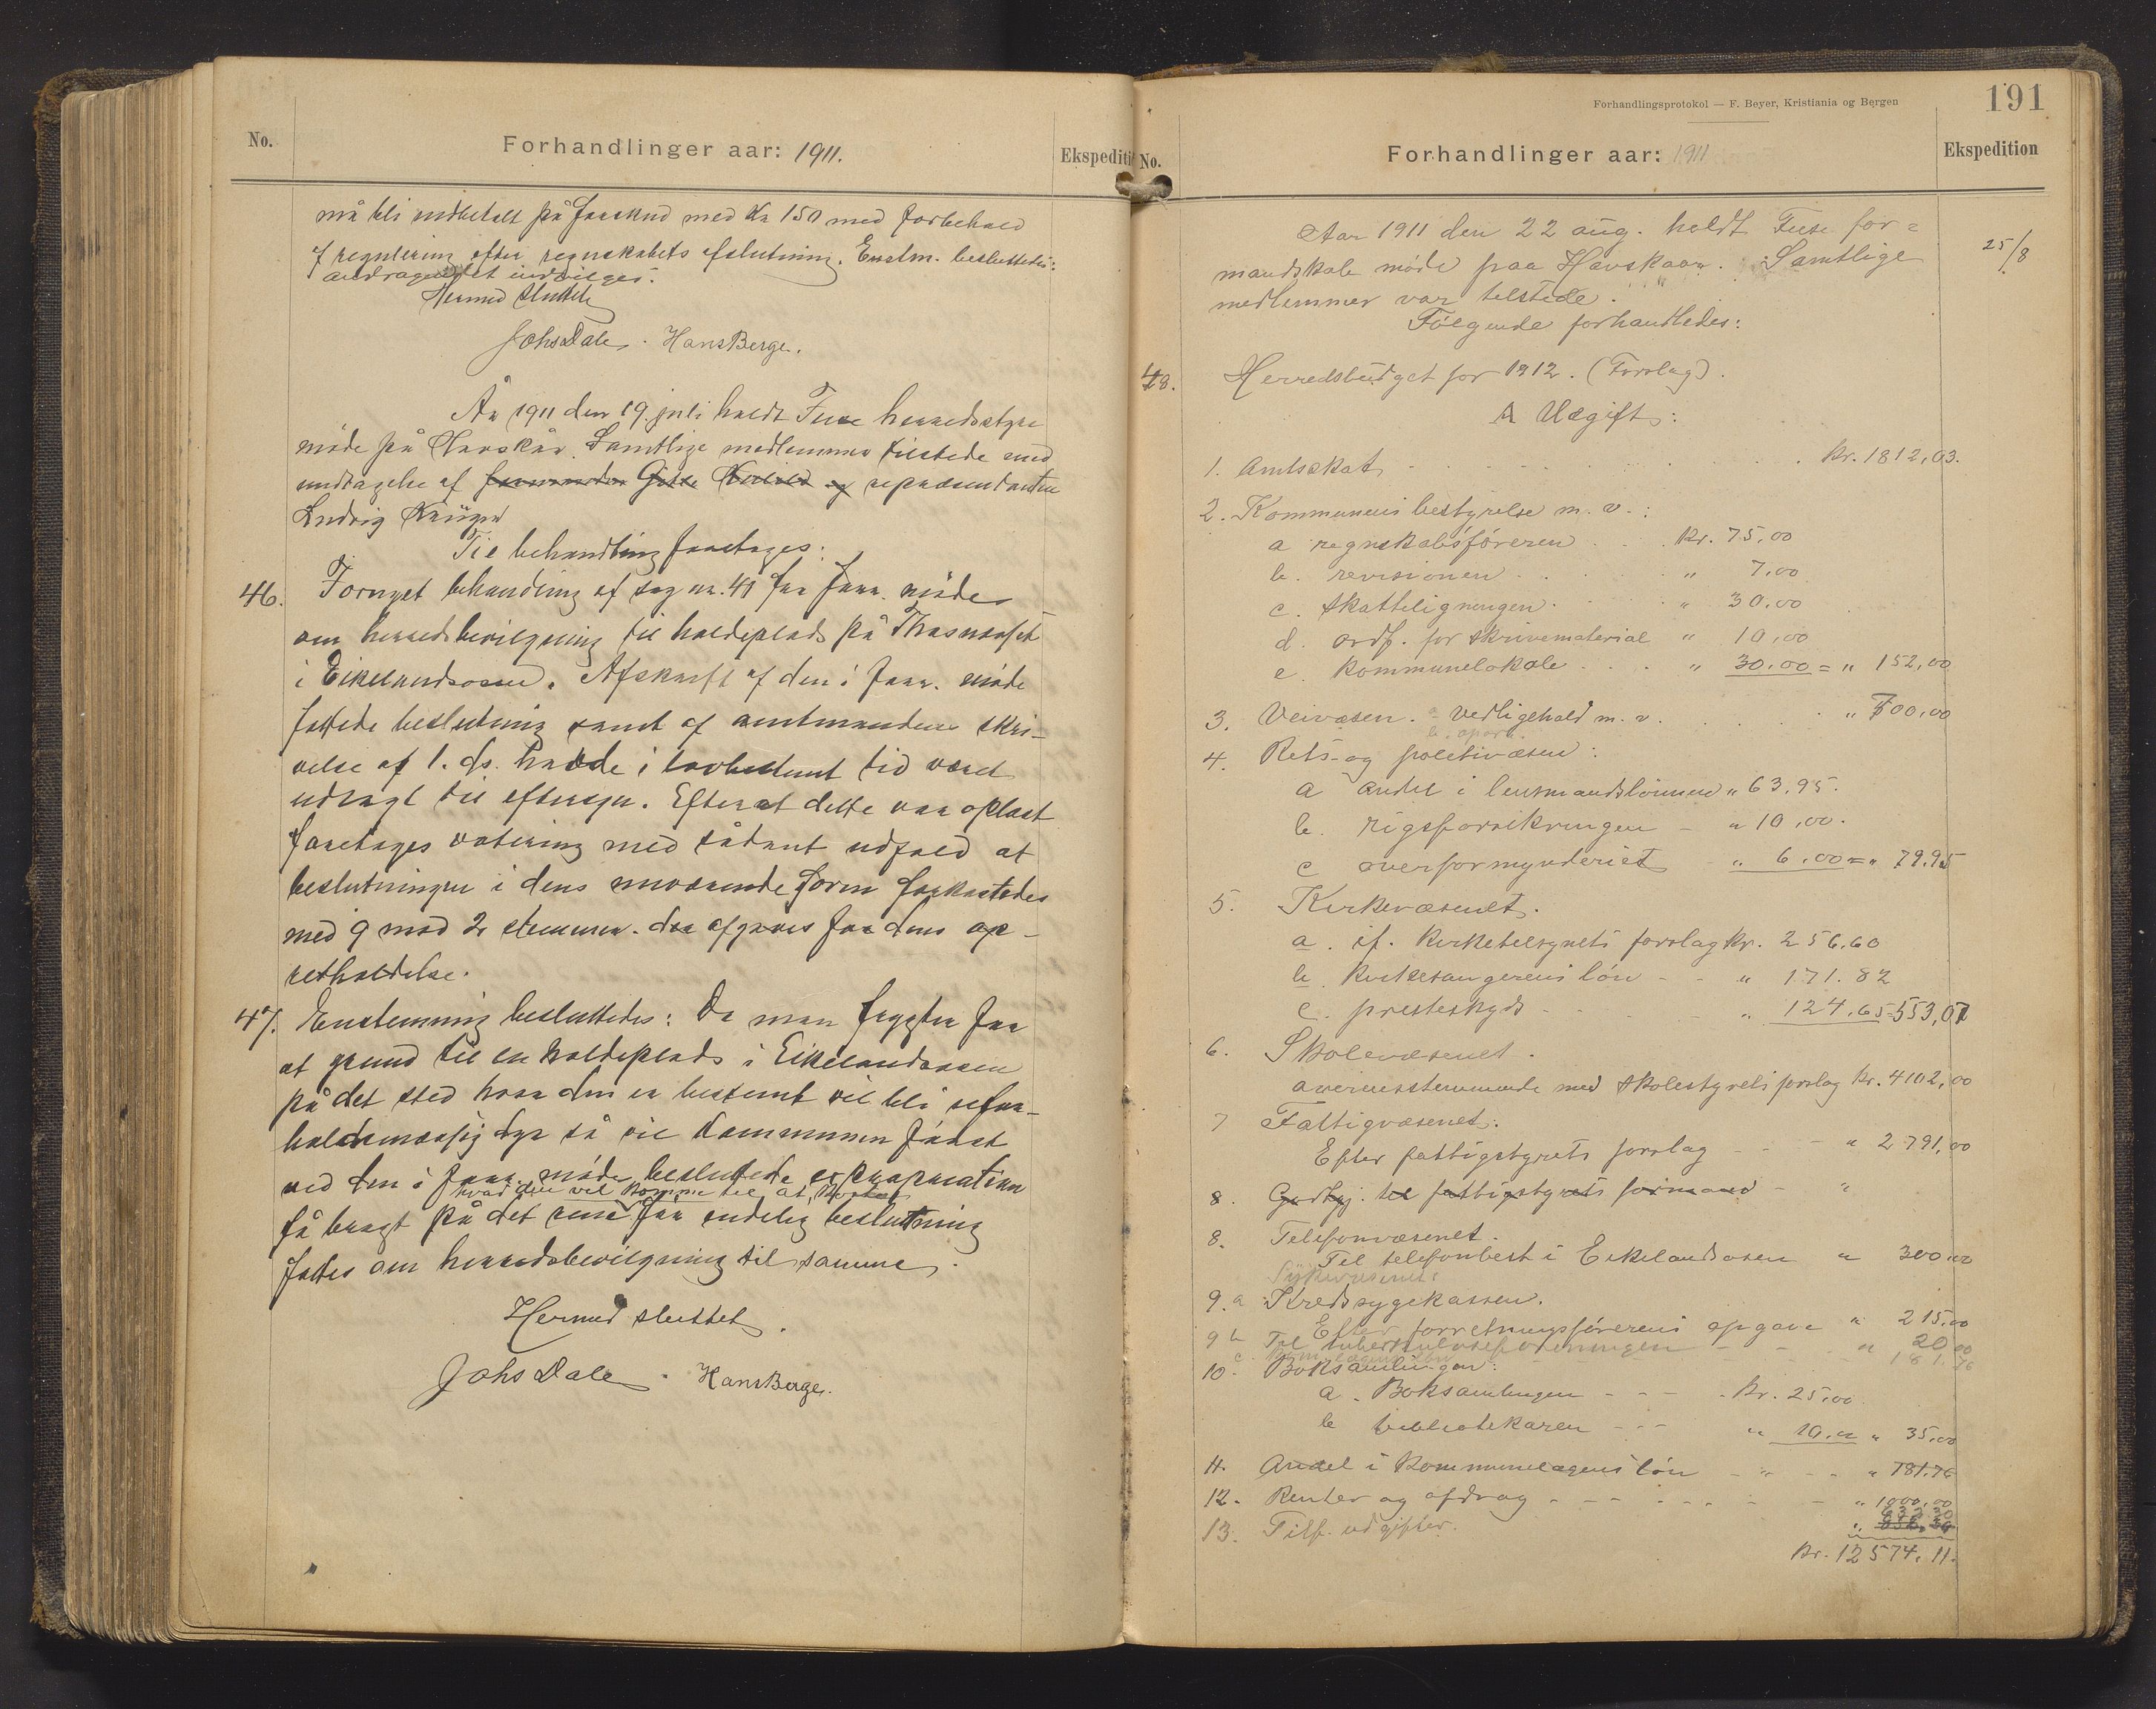 No.
Forhandlinger aar: 1911.
Ekspediti
må bli utbetalt på forskud med Kr 150 med forbehold
af regulering efter regnskabets afslutning. Enstm. besluttedes:
andragendet indvilges.
Hermed sluttet
Johs Dale . Hans Berge.
År 1911 den 19. juli holdt Fuse herredsstyre
møde på Havskår. Samtlige medlemmer tilstede med
undtagelse af formanden og repræsentanten
Ludvig Krüger
Til behandling foretoges:
46. Fornyet behandling af sag nr. 41 for form. møde
om herredsbevilgning til holdeplads på
i Eikelandsosen. Afskrift af den i form. møde
fattede beslutning samt af amtmandens skri-
velse af 1. ds. havde i lovbestemt tid været
udlagt til eftersyn. Efterat dette var oplæst
foretoges votering med sådant udfald at
beslutningen i dens nuværende form forkastedes
med 9 mod 2 stemmer. der afgaves for dens op-
retholdelse.
47. Enstemmig besluttedes: Da man frygter for
at grund til en holdeplads i Eikelandsosen
på det sted hvor den er bestemt vil bli ufor-
holdsmæssig dyr så vil kommunen først
ved den i form. møde besluttede expropriation
hvad den vil komme til at koste
få bragt på det rene før endelig beslutning
fattes om herredsbevilgning til samme.
Hermed sluttet.
Johs Dale . Hans Berge.
Forhandlingsprotokol — F. Beyer, Kristiania og Bergen
191
No.
Forhandlinger aar: 1911
Ekspedition
Aar 1911 den 22 aug. holdt Fuse for=
25/8
mandskab møde paa Havskaar. Samtlige
medlemmer var tilstede.
Følgende forhandledes:
48. Herredsbudget for 1912. (Forslag).
A Utgift:
1. Amtsskat . . . . . Kr. 1812,03.
2. Kommunens bestyrelse m. v.:
a regnskabsføreren . . Kr. 75,00
b. revisionen . . . " 7,00
c. skatteligningen . . " 30,00
d. ordf. for skrivematerial " 10,00
e. kommunelokale . . . " 30,00 = " 152,00
3. Veivæsen. a vedligehold m. v. . . . " 700,00
4. Rets- og politivæsen:
a andel i lensmandslønnen " 63,95.
b. rigsforsikringen - " 10,00.
c overformynderiet " 6,00 = " 79.95
5. Kirkevæsenet.
a. if. kirketilsynets forslag kr. 256.60
b. kirkesangerens løn - - " 171.82
c. presteskyds - - - " 124.65 = 553,07
6. Skolevæsenet.
overensstemmende med skolestyrets forslag Kr. 4102,00
7 Fattigvæsenet:
Efter fattigstyrets forslag - - " 2791,00
8. Godtgj. til fattigstyrets formand - "
8. Telefonvæsenet.
Til telefonbest i Eikelandsosen " 300,00
Sykevæsenet:
9. a Kredssygekassen.
Efter forretningsførerens opgave " 215,00
9 b Til tuberkuloseforeningen - - " 20,00
c. 181.76
10. Boksamlingen:
a. Boksamlingen - - - Kr. 25,00
b bibliotekaren - - - " 10,00 " 35,00
11. Andel i kommunelægens løn - " - - " 181.76
12. Renter og afdrag - - - - - " 1000,00
632,30
13. Tilf. udgifter. "
Kr. 12574,11.